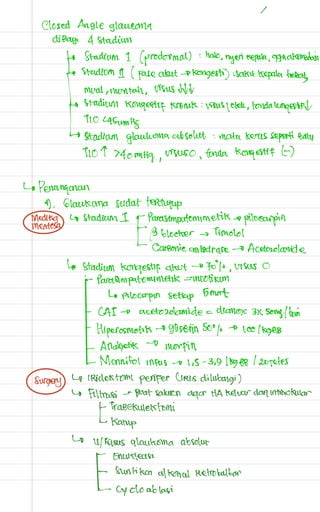 Closed Angle glaucoma
dibagi 4 Stadium
Stadium I (prodormal) : halo, nyeri kepala,
Stadium II (fase akut → kongesti) : sakit kepala hebat,
mual, muntah, visus ↓↓
Stadium Kongestif kronik : visus jelek, tanda kongestif ↓
TIO <45 mmHg
Stadium glaukoma absolut : mata keras seperti batu
TIO ↑ >40 mmHg, visus 0, tanda kongestif (-)
Penanganan
1). Glaukoma sudut tertutup
Stadium I Parasimpatomimetik → pilocarpin
β blocker → Timolol
Carbonic anhidrase → Acetazolamide
Stadium kongestif akut → 70%, visus 0
Parasimpatomimetik = miotikum
Pilocarpin setiap
CAI → acetazolamide = diamox 3x
Hiperosmotik → gliserin 50% → 1cc/kgBB
Analgetik → morfin
Mannitol infus → 1,5 - 3,9 /kgBB /
Surgery Iridektomi perifer (iris dilubangi)
Filtrasi → buat saluran agar HA keluar dari intraokular
Trabekulektomi
u/ kasus glaukoma absolut
Enukleasi
Suntikan alkohol Retrobulbar
Cyclo ablasi